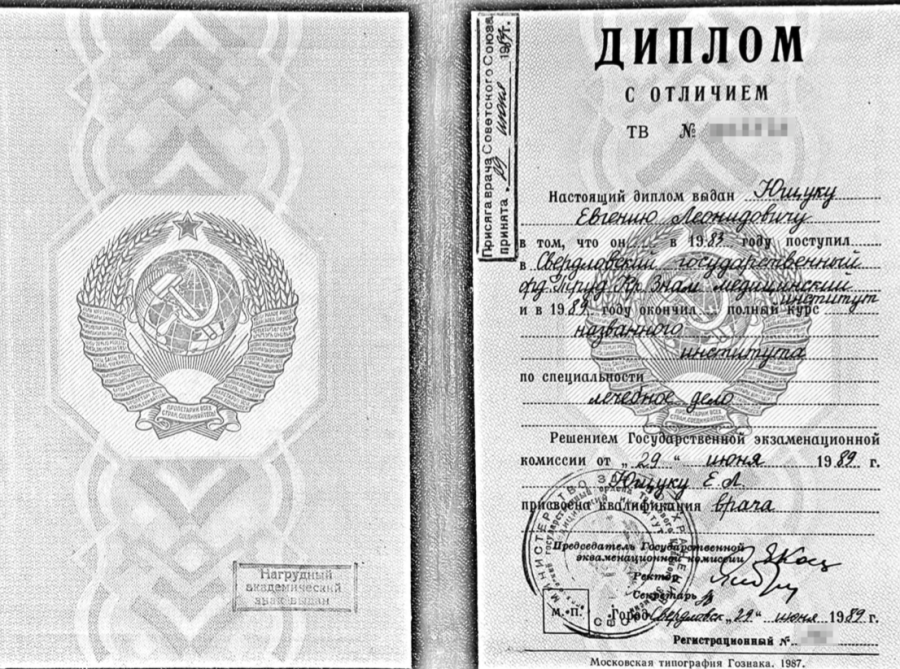 ПРОЛЕТАРИИ ВСЕХ
СТРАН, СОЕДИНЯЙТЕСЬ!
Нагрудный
академический
знак выдан
Присяга врача Советского Союза
принята „29 июня 1989г.
ДИПЛОМ
С ОТЛИЧИЕМ
ТВ №
Настоящий диплом выдан Ющуку
Евгению Леонидовичу
в том, что он в 1983 году поступил
в Свердловский государственный
орд. Труд. Кр. Знам. медицинский
институт
и в 1989 году окончил полный курс
названного
института
по специальности
лечебное дело
Решением Государственной экзаменационной
комиссии от „29“ июня 1989 г.
Ющуку Е.Л.
присвоена квалификация врача
Председатель Государственной
экзаменационной комиссии
Ректор
Секретарь
М. П. Город Свердловск „29“ июня 1989 г.
Регистрационный №
Московская типография Гознака. 1987.